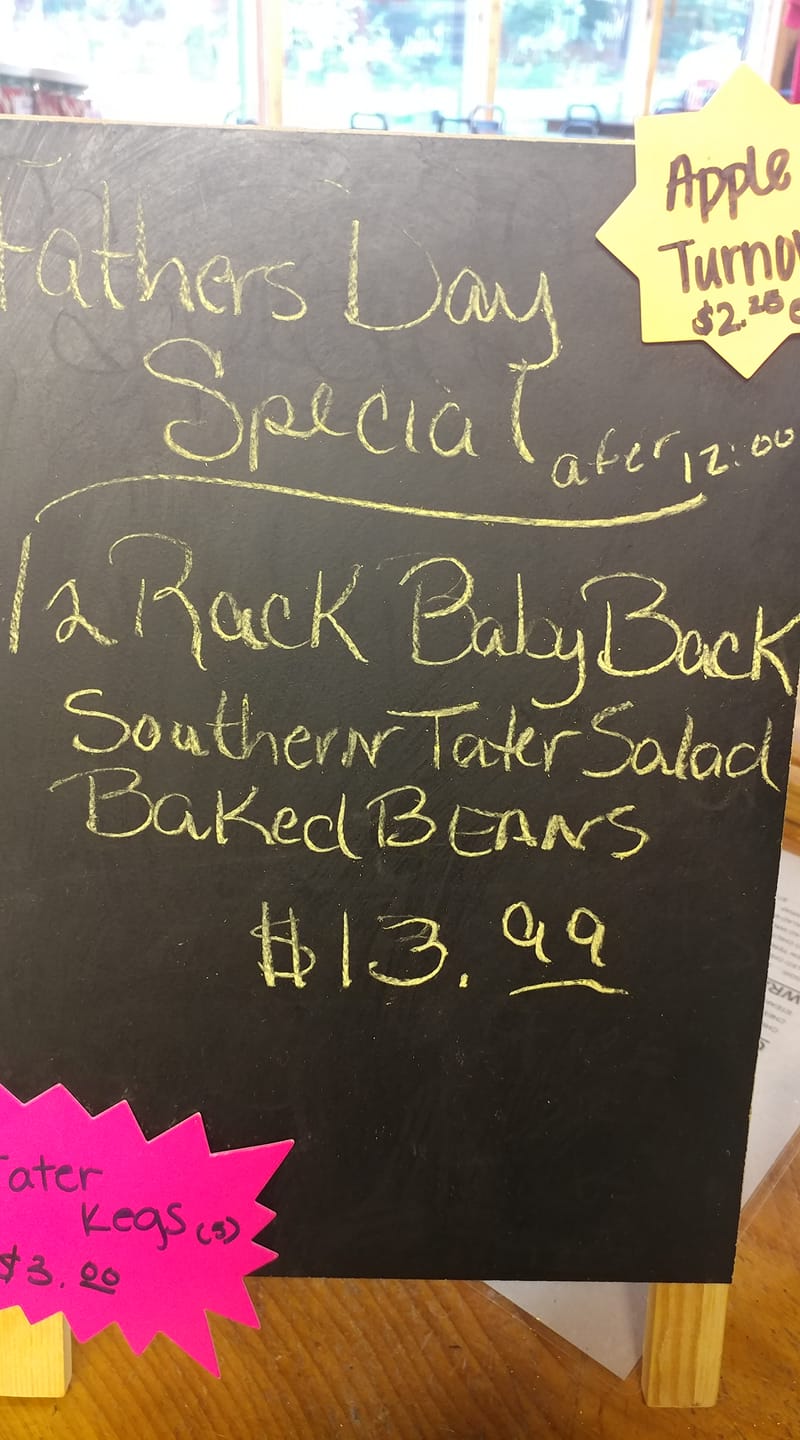 Fathers Day
Special
after 12:00
1/2 Rack Baby Back
Southern Tater Salad
Baked BEANS
$13.99
Apple
Turnov
$2.25 e
Tater
Kegs (5)
$3.00